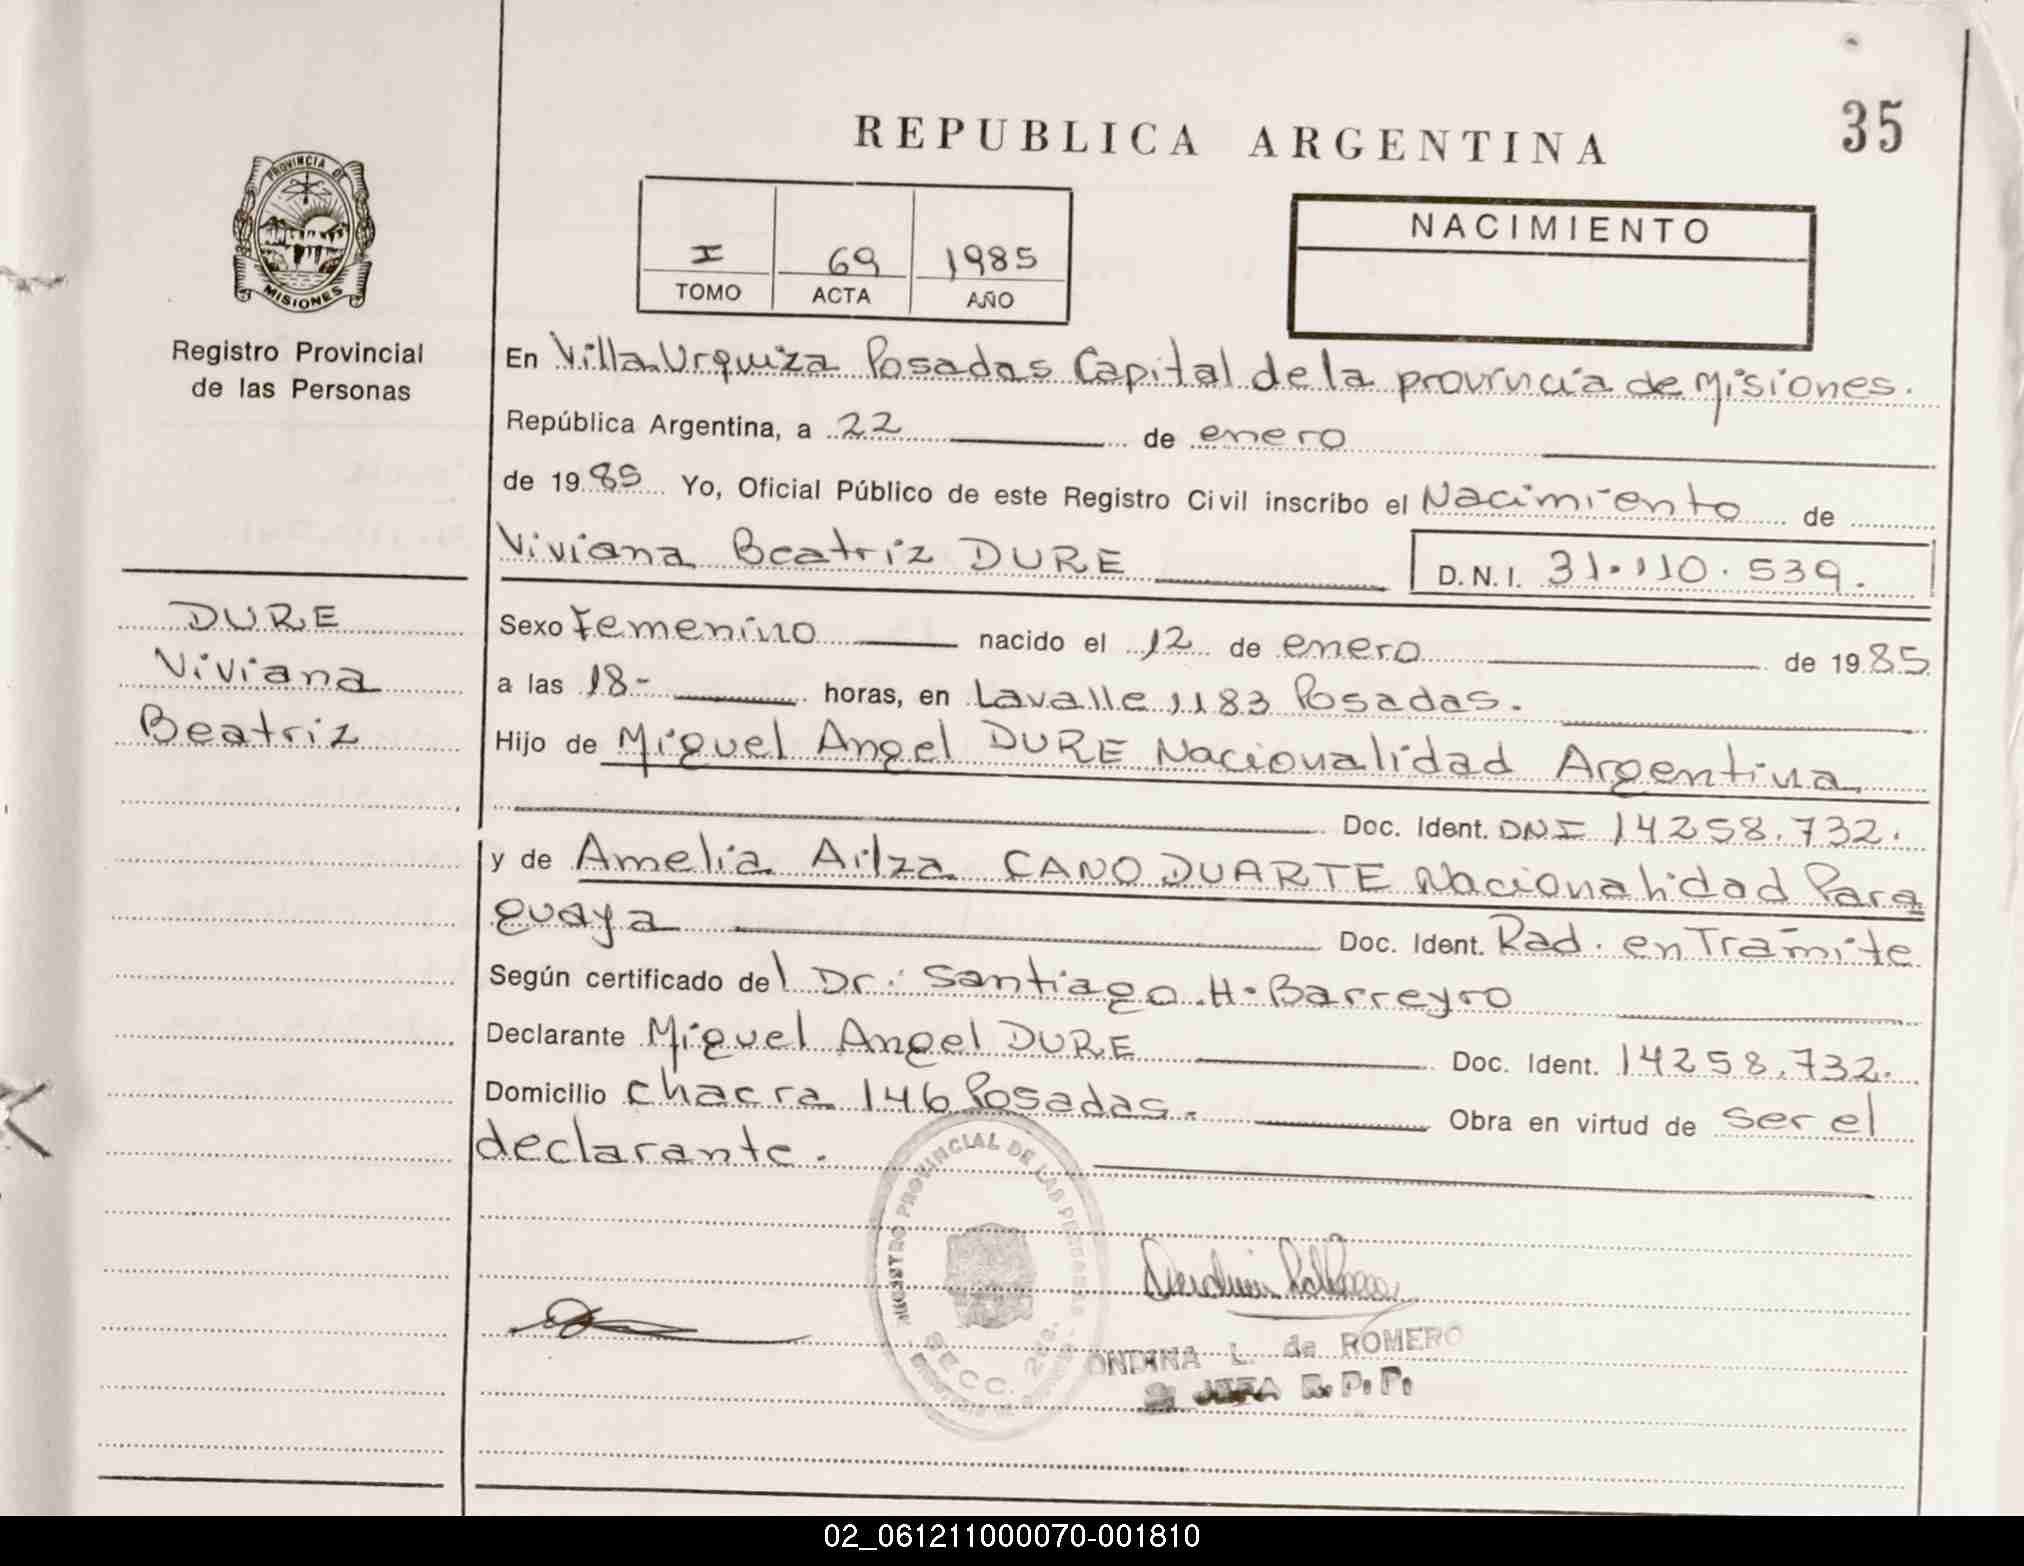 REPUBLICA ARGENTINA
35
PROVINCIA DE
MISIONES
Registro Provincial
de las Personas
I 69 1985
TOMO ACTA AÑO
NACIMIENTO
En Villa Urquiza Posadas Capital de la provincia de Misiones.
República Argentina, a 22 de enero
de 1985 Yo, Oficial Público de este Registro Civil inscribo el Nacimiento de
Viviana Beatriz DURE D.N.I. 31.110.539.
DURE
Viviana
Beatriz
Sexo Femenino nacido el 12 de enero de 1985
a las 18- horas, en Lavalle 1183 Posadas.
Hijo de Miguel Angel DURE Nacionalidad Argentina
Doc. Ident. DNI 14258.732.
y de Amelia Ailza CANO DUARTE Nacionalidad Para
guaya Doc. Ident. Rad. en Tramite
Según certificado del Dr. Santiago H. Barreyro
Declarante Miguel Angel DURE Doc. Ident. 14258.732.
Domicilio Chacra 146 Posadas. Obra en virtud de ser el
declarante.
REGISTRO PROVINCIAL DE LAS PERSONAS
SECC. 2
ONDINA L. de ROMERO
JEFA R. P. P.
02_061211000070-001810